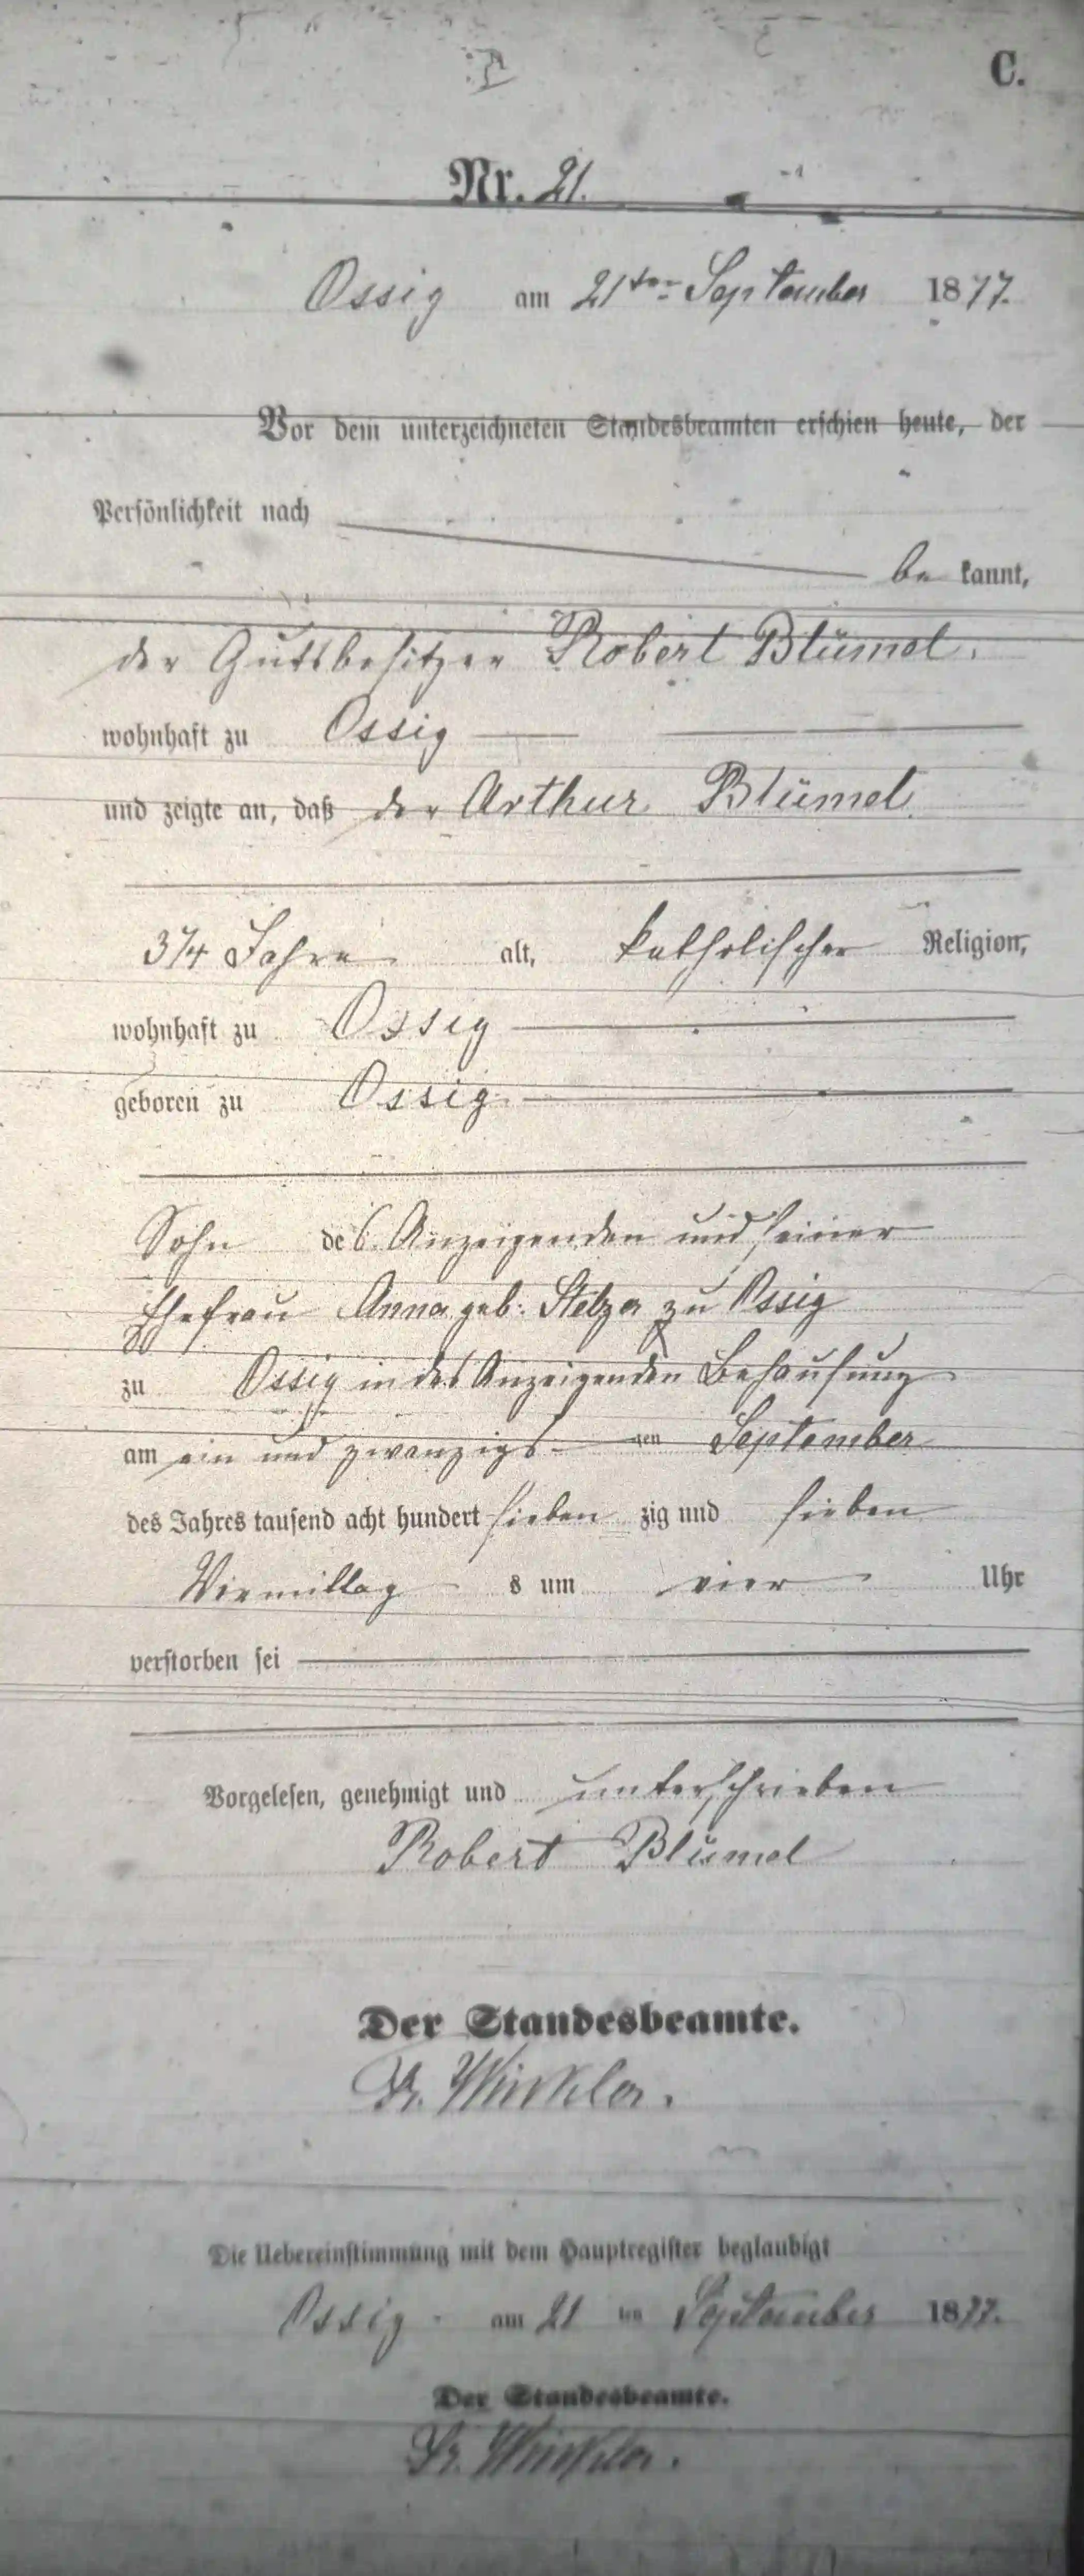 C.
Nr. 21.
Ossig am 21ten September 1877.
Vor dem unterzeichneten Standesbeamten erschien heute, der
Persönlichkeit nach
be kannt,
der Gutsbesitzer Robert Blümel.
wohnhaft zu Ossig
und zeigte an, daß der Arthur Blümel
3/4 Jahre alt, katholischer Religion,
wohnhaft zu Ossig
geboren zu Ossig
Sohn des Anzeigenden und seiner
Ehefrau Anna geb. Stelzer zu Ossig
zu Ossig in des Anzeigenden Behausung
am ein und zwanzigs ten September
des Jahres tausend acht hundert sieben zig und sieben
Vormittag s um vier Uhr
verstorben sei
Vorgelesen, genehmigt und unterschrieben
Robert Blümel
Der Standesbeamte.
Fr. Winkler.
Die Uebereinstimmung mit dem Hauptregister beglaubigt
Ossig am 21 ten September 1877.
Der Standesbeamte.
Fr. Winkler.